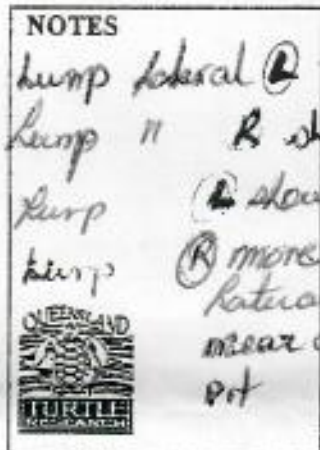 NOTES
Lump lateral L
Lump " R sh
Lump L shou
Lump R more
latera
near
pit
QUEENSLAND
TURTLE
RESEARCH